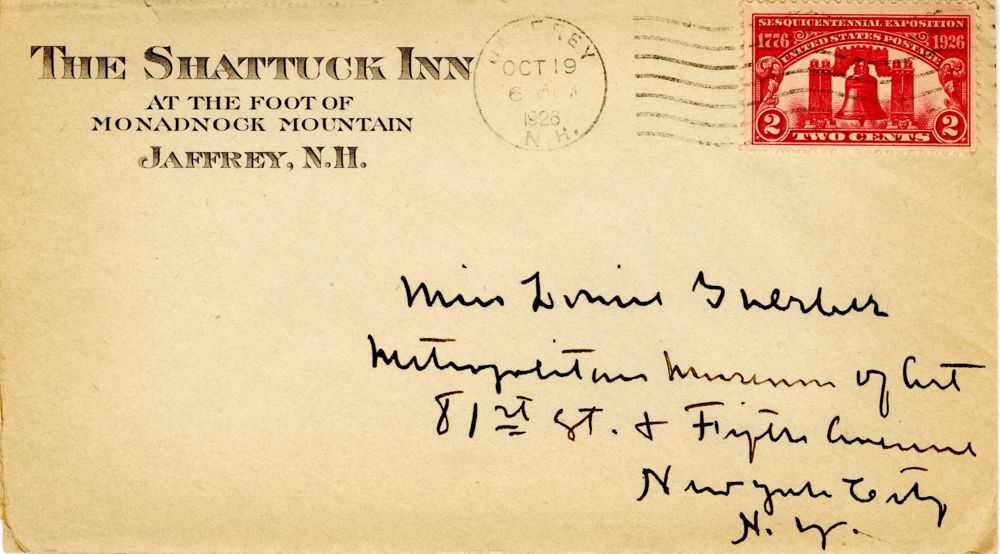 THE SHATTUCK INN
AT THE FOOT OF
MONADNOCK MOUNTAIN
JAFFREY, N.H.
JAFFREY
OCT 19
6
1926
N.H.
SESQUICENTENNIAL EXPOSITION
1776 UNITED STATES POSTAGE 1926
2 TWO CENTS 2
Miss Louise Guerber
Metropolitan Museum of Art
81st St. & Fifth Avenue
New York City
N.Y.